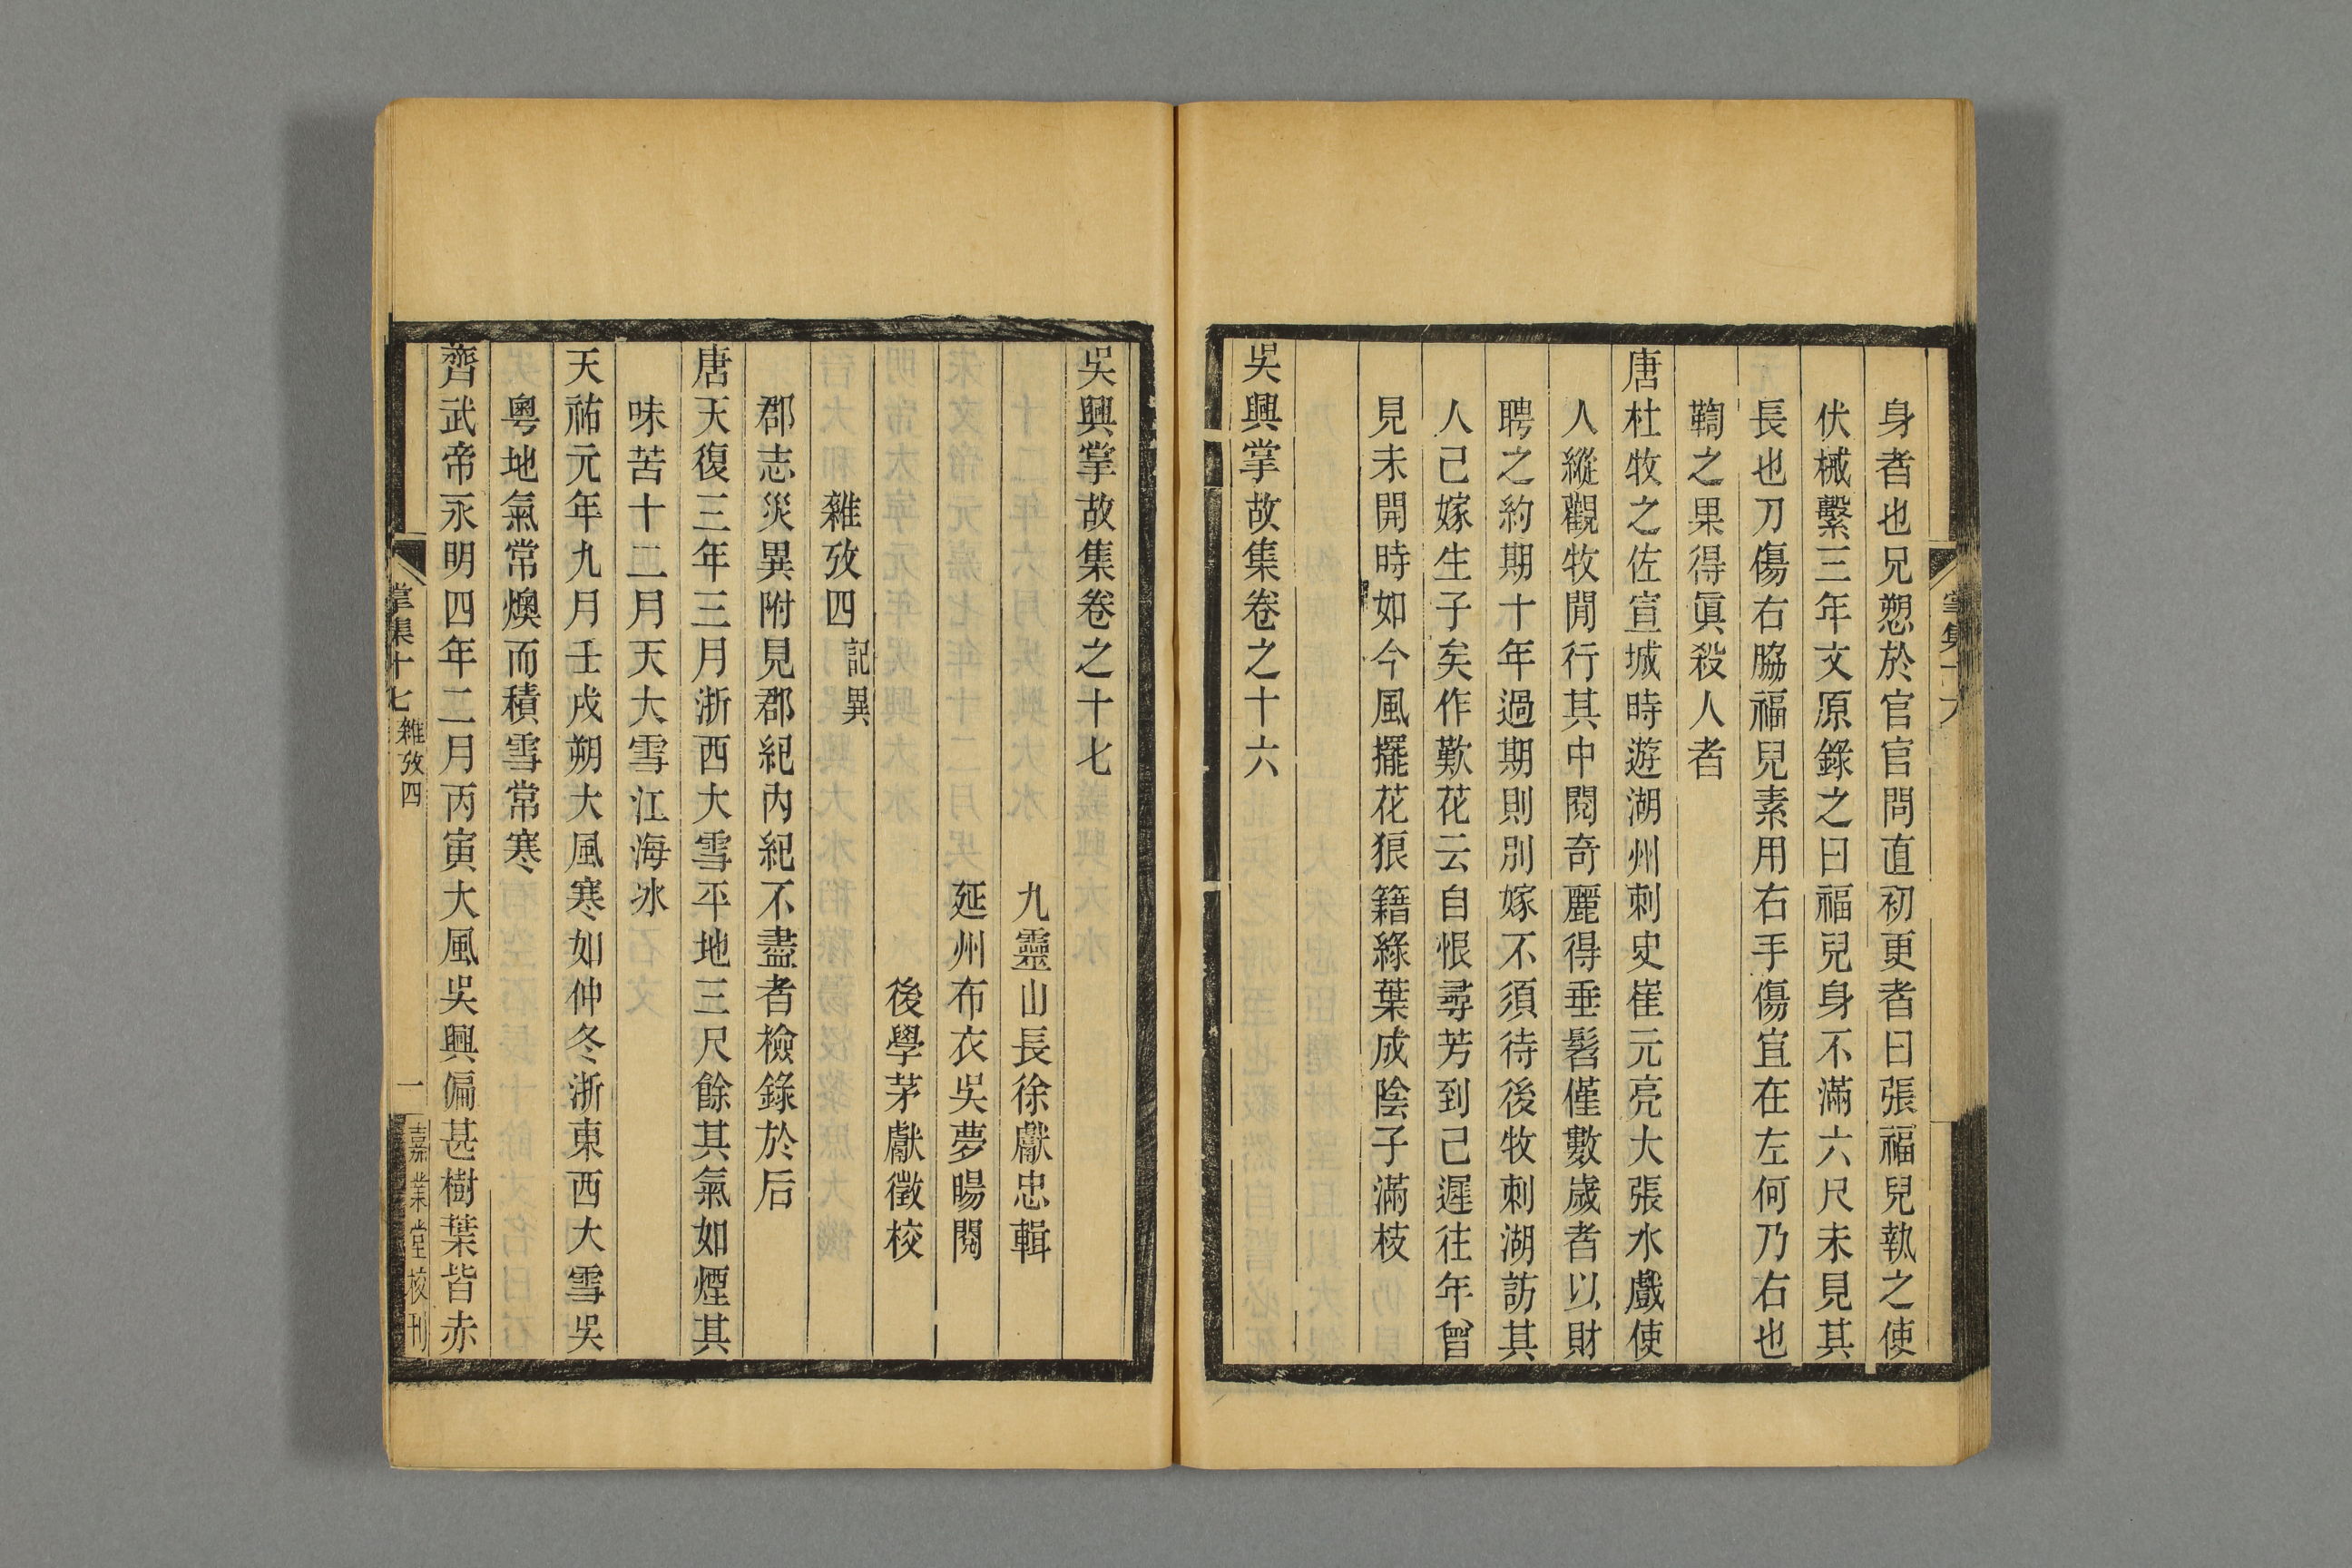 身者也兄愬於官官問直初更者曰張福兒執之使
伏械繫三年文原錄之曰福兒身不滿六尺未見其
長也刀傷右脇福兒素用右手傷宜在左何乃右也
鞫之果得眞殺人者
唐杜牧之佐宣城時遊湖州刺史崔元亮大張水戲使
人縱觀牧閒行其中閱奇麗得垂髫僅數歲者以財
聘之約期十年過期則別嫁不須待後牧刺湖訪其
人已嫁生子矣作歎花云自恨尋芳到已遲往年曾
見未開時如今風擺花狼籍綠葉成陰子滿枝
吳興掌故集卷之十六
吳興掌故集卷之十七
九靈山長徐獻忠輯
延州布衣吳夢暘閱
後學茅獻徵校
雜攷四 記異
郡志災異附見郡紀內紀不盡者檢錄於后
唐天復三年三月浙西大雪平地三尺餘其氣如煙其
味苦十二月天大雪江海冰
天祐元年九月壬戌朔大風寒如仲冬浙東西大雪吳
粵地氣常燠而積雪常寒
齊武帝永明四年二月丙寅大風吳興偏甚樹葉皆赤
掌集十七 雜攷四 一 嘉業堂校刊